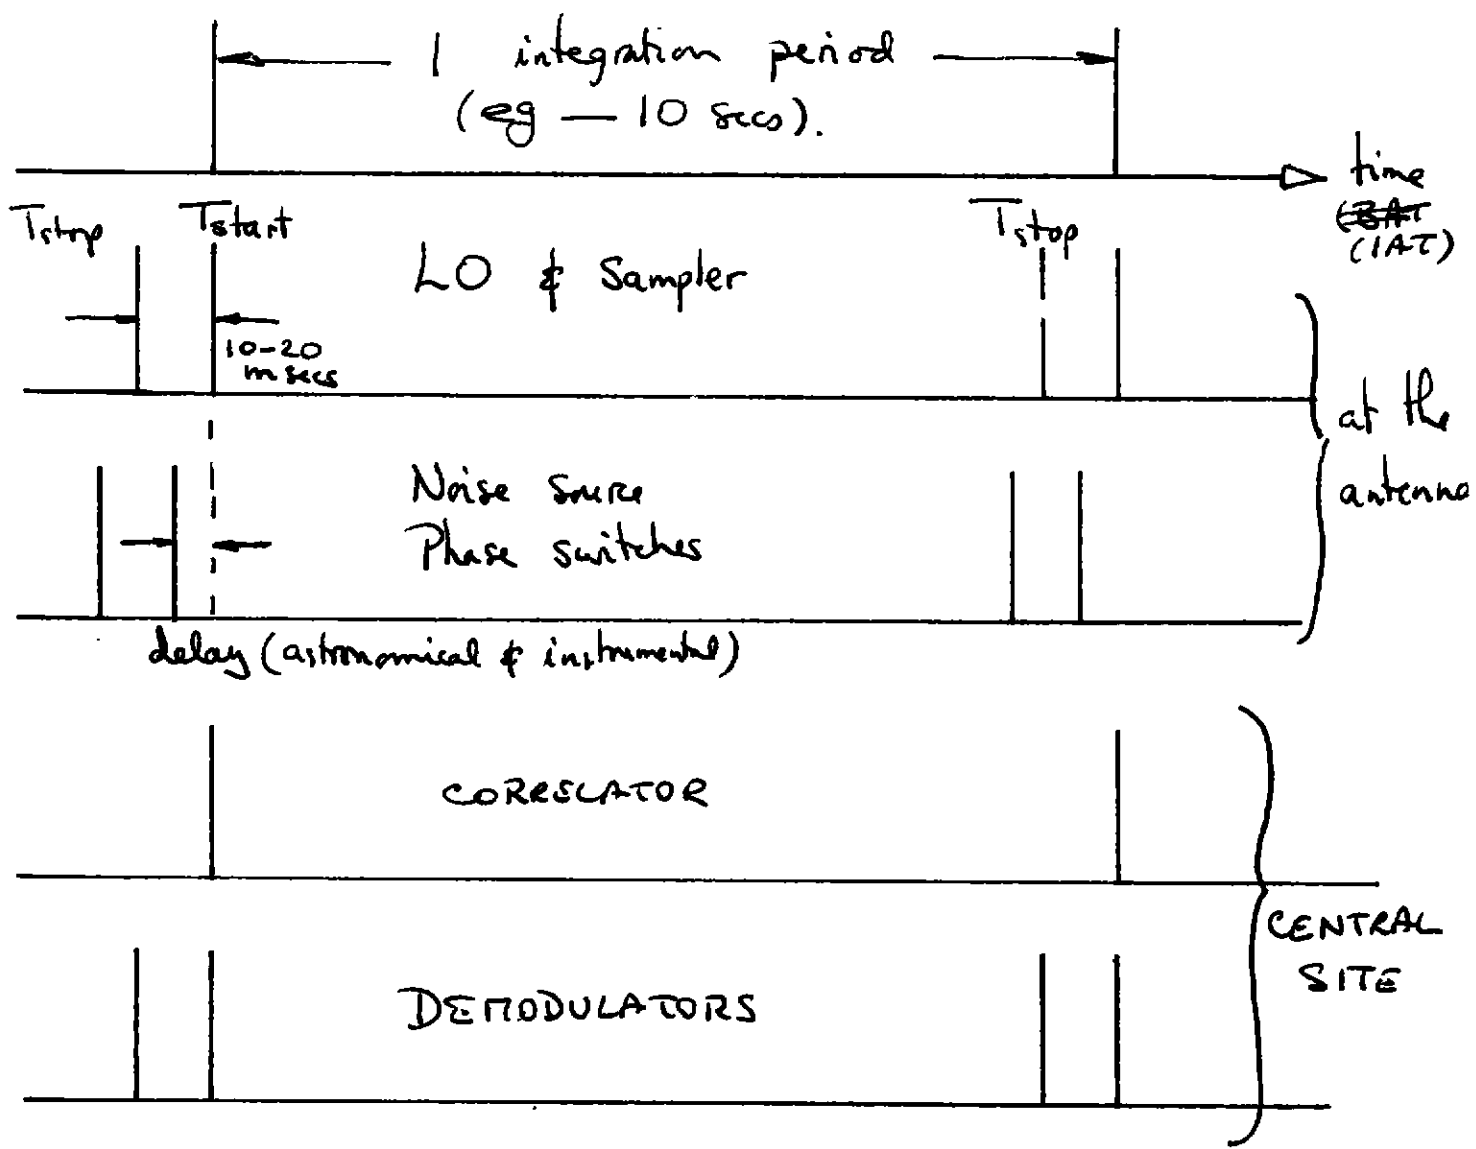 1 integration period
(eg — 10 secs).
time
(BAT
(IAT)
Tstop
Tstart
Tstop
LO & Sampler
10-20
m secs
at the
antenna
Noise source
Phase switches
delay (astronomical & instrumental)
CORRELATOR
CENTRAL
SITE
DEMODULATORS